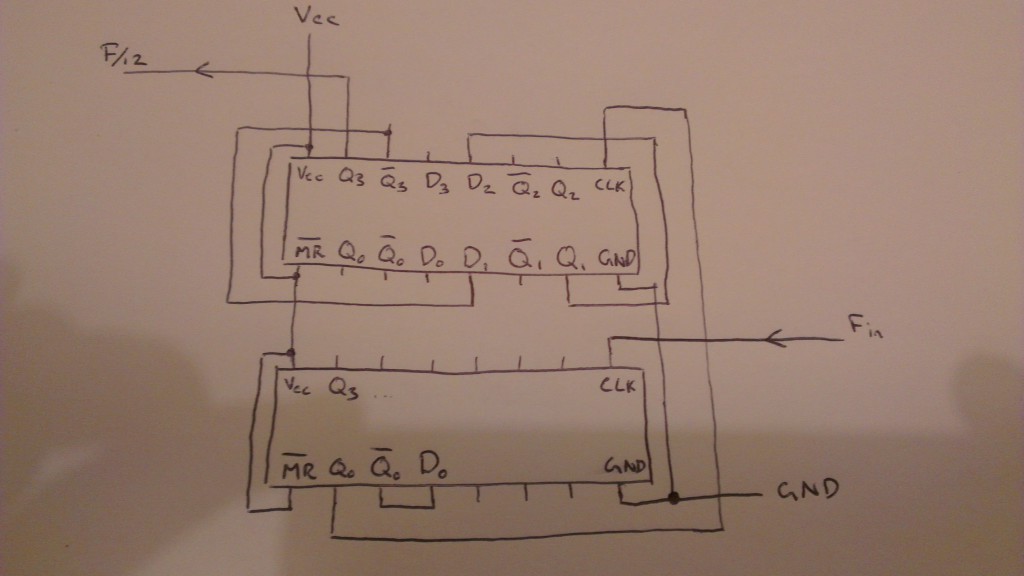 Vcc
F/12
Vcc Q3 Q̅3 D3 D2 Q̅2 Q2 CLK
M̅R̅ Q0 Q̅0 D0 D1 Q̅1 Q1 GND
Fin
Vcc Q3 ... CLK
M̅R̅ Q0 Q̅0 D0 GND
GND